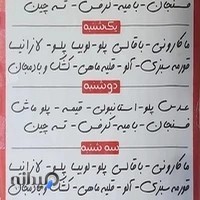 فسنجان - بامیه - کرفس - ته چین
یکشنبه
ماکارونی - باقالی پلو - لوبیا پلو - لازانیا
قورمه سبزی - آلو - قلیه ماهی - کشک و بادمجان
دوشنبه
عدس پلو - استانبولی - قیمه - پلو ماش
فسنجان - بامیه - کرفس - ته چین
سه شنبه
ماکارونی - باقالی پلو - لوبیا پلو - لازانیا
قورمه سبزی - آلو - قلیه ماهی - کشک و بادمجان